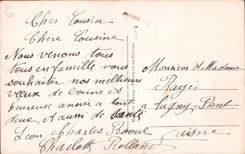 Cher Cousin
Chère Cousine
Nous venons tous
tous en famille vous
souhaiter nos meilleurs
vœux de bonne et
heureuse année a tout
deux. Aussi de santé
Léon Charles Raoul
Charlott Rolland
Monsieur et Madame
à Lagny-Pont
Aisne